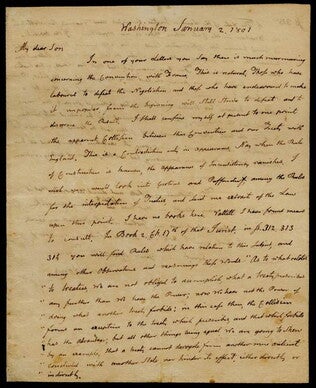 Washington January 2. 1801
My dear Son
In one of your Letters you say there is much murmuring
concerning the Convention with France. This is natural. Those who have
laboured to defeat the Negotiation and those who have endeavoured to make
it unpopular from the beginning will still strive to defeat and to
the Treaty. I shall confine myself at present to one point
the apparent Collision between this Convention and our Treaty with
England. This is a Contradiction only in appearance. For when the Rule
of Construction is known the appearance of Inconsistency vanishes. I
wish you would look into Grotius and Puffendorf among the Rules
for the interpretation of Treaties and send me extracts of the Law
upon this point. I have no books here. Vattell I have found means
to consult. In Book 2. Ch. 17th of that Jurist, in p. 312, 313
314 you will find Rules which have relation to this subject, and
among other Observations and reasonings these Words "As to what relates
" to treaties we are not obliged to accomplish what a treaty prescribes
" any further than we have the Power; now We have not the Power of
" doing what another treaty forbids; in this case then, the Collision
" forms an exception to the treaty which prescribes and that which forbids
" has the advantage, but all other things being equal We are going to shew
" by an example, that a treaty cannot derogate from another more ancient
" concluded with another State nor hinder its effect either directly or
" indirectly.